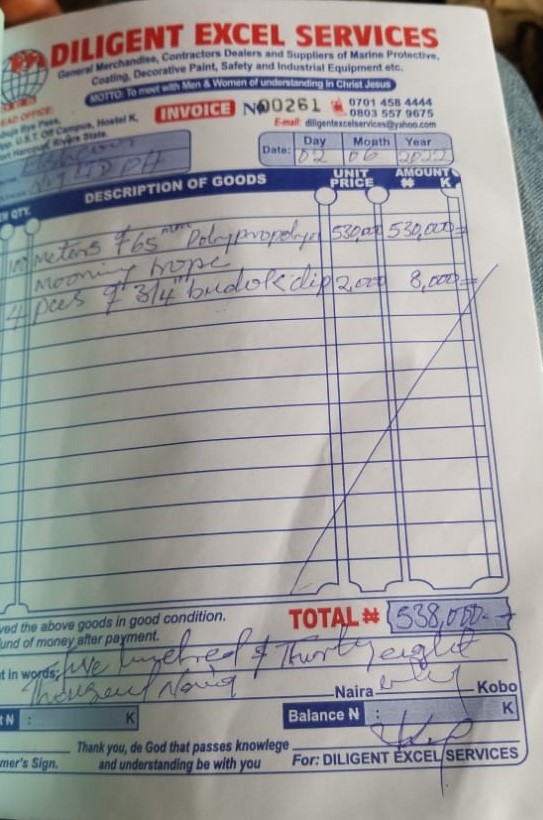 DILIGENT EXCEL SERVICES
General Merchandise, Contractors Dealers and Suppliers of Marine Protective,
Coating, Decorative Paint, Safety and Industrial Equipment etc.
MOTTO: To meet with Men & Women of understanding in Christ Jesus
EAD OFFICE:
Bye Pass,
Opp. U.S.T. Off Campus, Hostel K,
Harcourt, Rivers State.
INVOICE No 00261 0701 458 4444
0803 557 9675
E-mail: diligentexcelservices@yahoo.com
Date: Day Month Year
02 06 2022
QTY. DESCRIPTION OF GOODS UNIT PRICE AMOUNT ₦ K
100 meters of 65mm 530,000 530,000=
mooring rope
4 pces of 3/4" 2,000 8,000=
ved the above goods in good condition.
und of money after payment.
TOTAL ₦ 538,000
t in words: Five hundred & Thirty eight
Thousand Naira Naira only Kobo
t N : K Balance N : K
Thank you, de God that passes knowlege
and understanding be with you
mer's Sign. For: DILIGENT EXCEL SERVICES